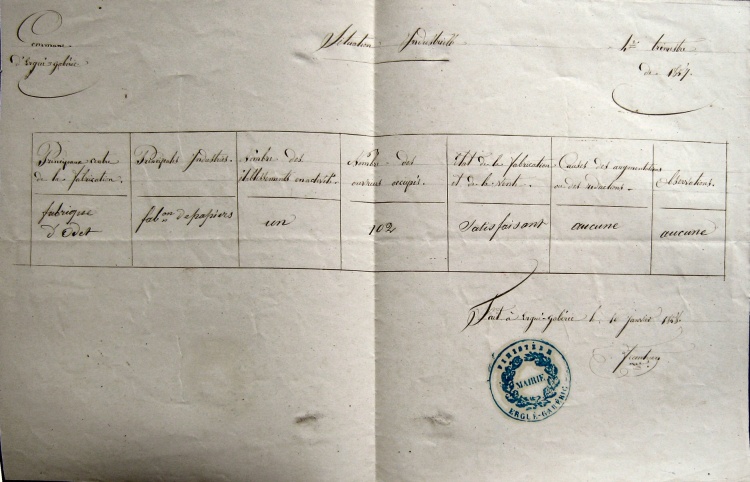 Commune
d'Ergué-gabéric
Situation Industrielle
4e trimestre
de 1857.
Principaux centres
de la fabrication.
Principales Industries.
Nombre des
établissements en activité.
Nombre des
ouvriers occupés.
Etat de la fabrication
et de la vente.
Causes des augmentations
ou des réductions.
Observations.
fabrique
d'Odet
fabon de papiers
un
102
Satisfaisant
aucune
aucune
Fait à Ergué-gabéric le 10 janvier 1858.
FINISTÈRE
MAIRIE
ERGUÉ-GABÉRIC